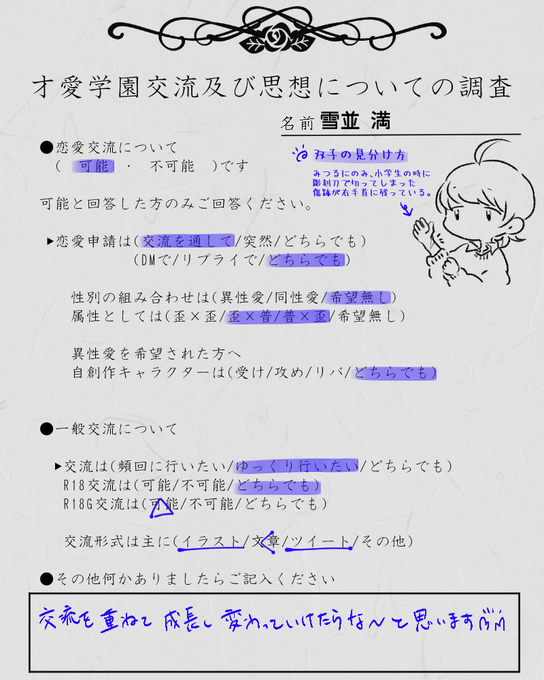 才愛学園交流及び思想についての調査
名前 雪並 満
●恋愛交流について
( 可能 ・ 不可能 )です
双子の見分け方
みつるにのみ、小学生の時に
彫刻刀で切ってしまった
傷跡が右手首に残っている。
可能と回答した方のみご回答ください。
▶恋愛申請は(交流を通して/突然/どちらでも)
(DMで/リプライで/どちらでも)
性別の組み合わせは(異性愛/同性愛/希望無し)
属性としては(歪×歪/歪×普/普×歪/希望無し)
異性愛を希望された方へ
自創作キャラクターは(受け/攻め/リバ/どちらでも)
●一般交流について
▶交流は(頻回に行いたい/ゆっくり行いたい/どちらでも)
R18交流は(可能/不可能/どちらでも)
R18G交流は(可能/不可能/どちらでも)
交流形式は主に(イラスト/文章/ツイート/その他)
●その他何かありましたらご記入ください
交流を重ねて成長し変わっていけたらな〜と思います